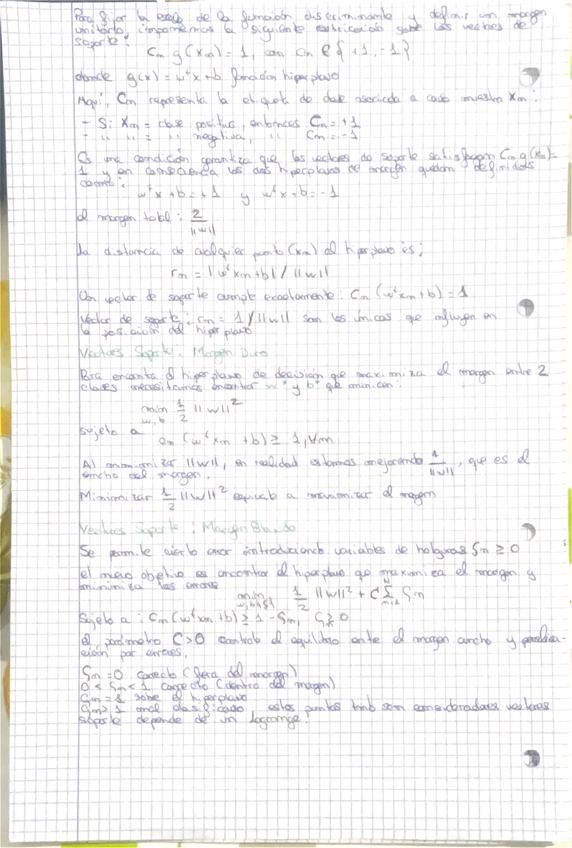 Para fijar la escala de la función discriminante y definir un margen
unitario, imponemos la siguiente restricción sobre los vectores de
soporte:
Cn g(xn) = 1, con Cn ∈ {+1, -1}
donde g(x) = wᵗx + b función hiperplano
Aquí, Cn representa la etiqueta de clase asociada a cada muestra xn:
- Si xn = clase positiva, entonces Cn = +1
- " " = " negativa, " Cn = -1
una condición garantiza que los vectores de soporte satisfagan Cn g(xn) =
1 y en consecuencia los dos hiperplanos de margen quedan definidos
como:
wᵗx + b = +1 y wᵗx + b = -1
el margen total: 2 / ||w||
La distancia de cualquier punto (xn) al hiperplano es:
rn = |wᵗxn + b| / ||w||
Un vector de soporte cumple exactamente: Cn (wᵗxn + b) = 1
Vector de soporte: rn = 1 / ||w|| son los únicos que influyen en
la posición del hiperplano
Vectores Soporte: Margen Duro
Para encontrar el hiperplano de decisión que maximiza el margen entre 2
clases necesitamos encontrar w* y b* que minimicen:
min w, b 1/2 ||w||²
sujeto a
Cn (wᵗxn + b) ≥ 1, ∀n
Al minimizar ||w||, en realidad estamos mejorando 1/||w||, que es el
ancho del margen.
Minimizar 1/2 ||w||² equivale a maximizar el margen
Vectores Soporte: Margen Blando
Se permite cierto error introduciendo variables de holguras ξn ≥ 0
el nuevo objetivo es encontrar el hiperplano que maximiza el margen y
minimiza los errores
min w,b,{ξ} 1/2 ||w||² + C Σ ξn
Sujeto a: Cn (wᵗxn + b) ≥ 1 - ξn, ξn ≥ 0
el parámetro C > 0 controla el equilibrio entre el margen ancho y penaliza-
ción por errores.
ξn = 0 correcto (fuera del margen)
0 < ξn < 1 correcto (dentro del margen)
ξn = 1 sobre el hiperplano
ξn > 1 mal clasificado, estos puntos tmb son considerados vectores
soporte depende de un lagrange!